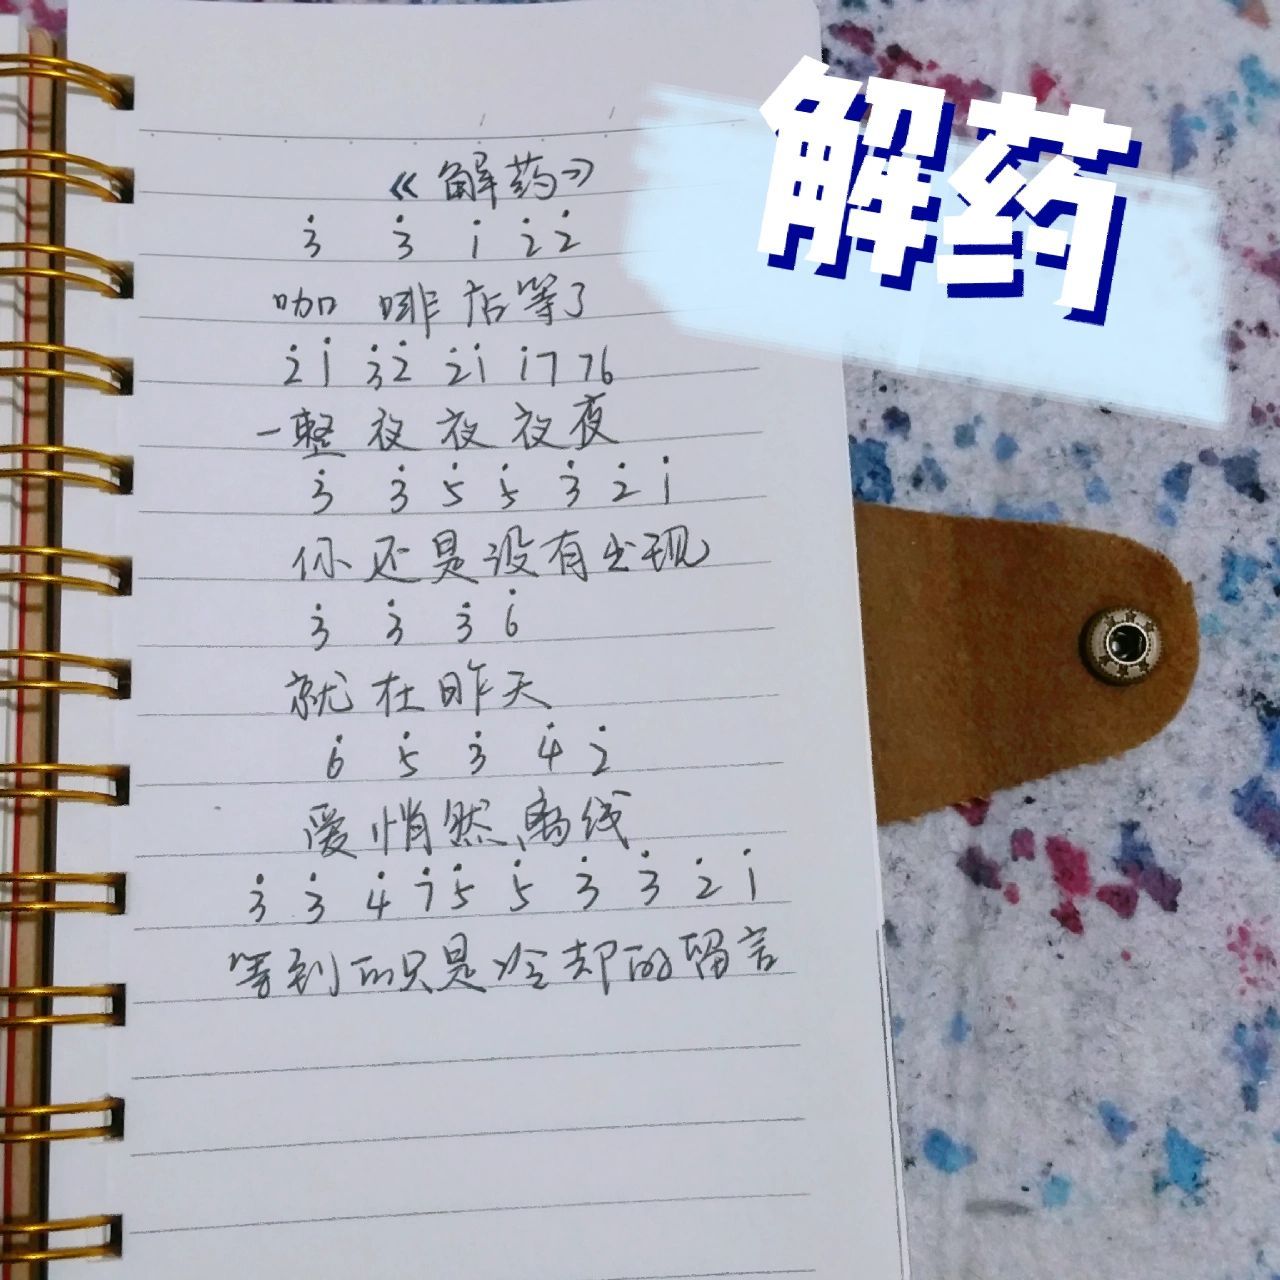 解药
《解药》
3̇ 3̇ 1̇ 2̇ 2̇
咖啡店等了
2̇ 1̇ 3̇ 2̇ 2̇ 1̇ 1̇ 7 7 6
一整夜夜夜夜
3̇ 3̇ 5̇ 5̇ 3̇ 2̇ 1̇
你还是没有出现
3̇ 3̇ 3̇ 6̇
就在昨天
6̇ 5̇ 3̇ 4̇ 2̇
爱悄然离线
3̇ 3̇ 4̇ 7̇ 5̇ 5̇ 3̇ 3̇ 2̇ 1̇
等到的只是冷却的留言